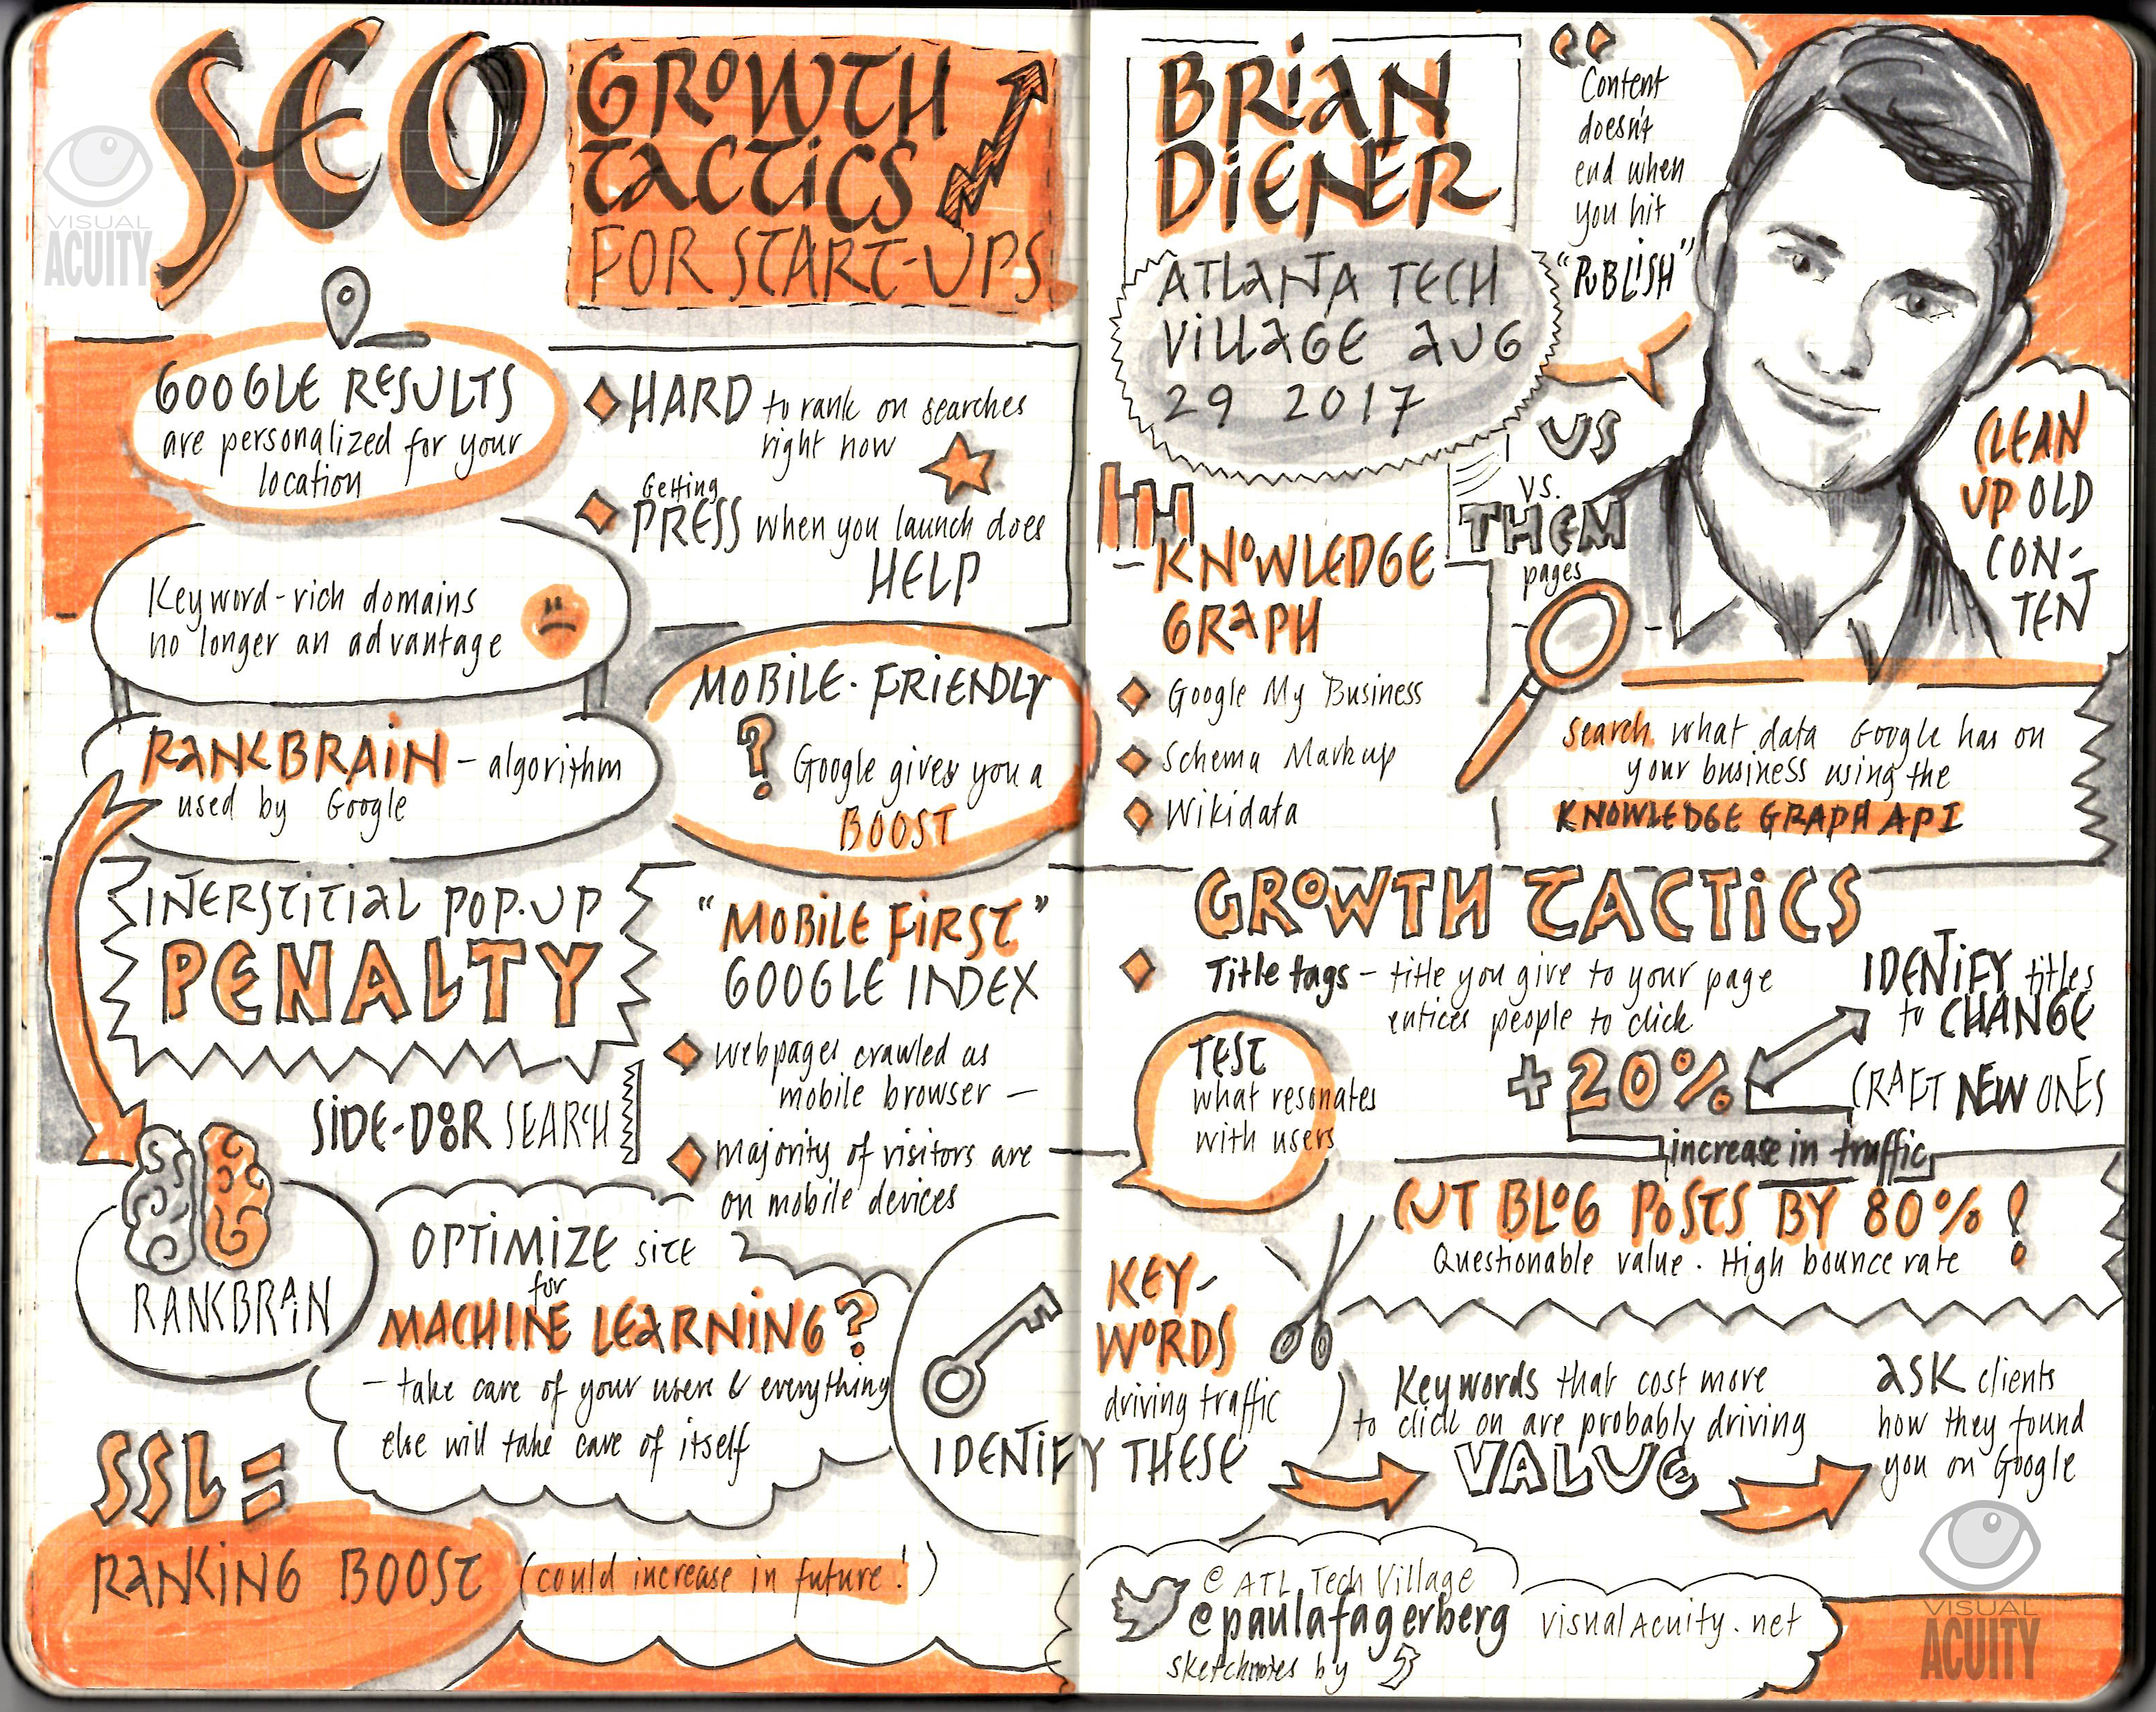 SEO
GROWTH
TACTICS
FOR START-UPS
VISUAL
ACUITY
GOOGLE RESULTS
are personalized for your
location
HARD to rank on searches
right now
Getting
PRESS when you launch does
HELP
Keyword-rich domains
no longer an advantage
RANKBRAIN - algorithm
used by Google
MOBILE-FRIENDLY
? Google gives you a
BOOST
INERSTITIAL POP-UP
PENALTY
SIDE-DOOR SEARCH
"MOBILE FIRST"
GOOGLE INDEX
webpages crawled as
mobile browser -
majority of visitors are
on mobile devices
RANKBRAIN
OPTIMIZE SITE
for
MACHINE LEARNING?
- take care of your users & everything
else will take care of itself
SSL =
RANKING BOOST (could increase in future!)
BRIAN
DIENER
ATLANTA TECH
VILLAGE AUG
29 2017
"Content
doesn't
end when
you hit
"PUBLISH"
US
VS.
THEM
pages
CLEAN
UP OLD
CON-
TENT
KNOWLEDGE
GRAPH
Google My Business
Schema Markup
Wikidata
Search what data Google has on
your business using the
KNOWLEDGE GRAPH API
GROWTH TACTICS
Title tags - title you give to your page
entices people to click
IDENTIFY titles
to CHANGE
CRAFT NEW ONES
+20%
increase in traffic
TEST
what resonates
with users
CUT BLOG POSTS BY 80%!
Questionable value. High bounce rate
KEY-
WORDS
driving traffic
IDENTIFY THESE
Keywords that cost more
to click on are probably driving
VALUE
ASK clients
how they found
you on Google
@ ATL Tech Village
@paulafagerberg
sketchnotes by
visualAcuity.net
VISUAL
ACUITY